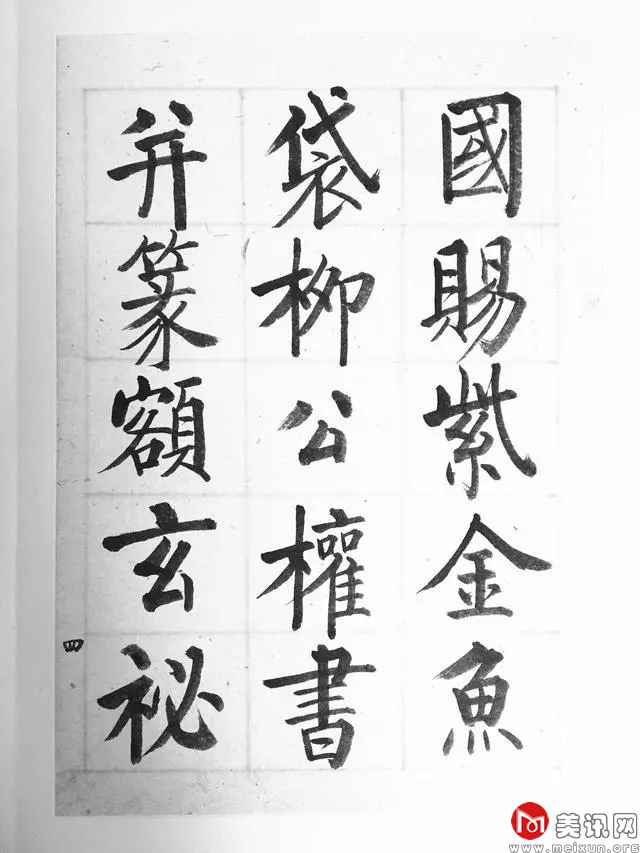 國賜紫金魚
袋柳公權書
并篆額玄祕
四
美讯网
www.meixun.org